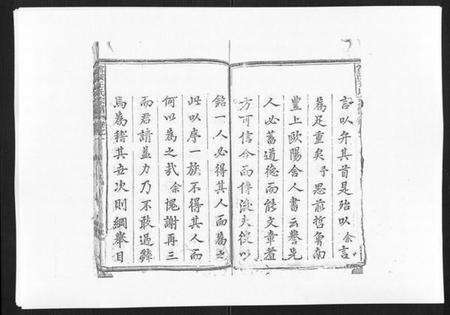 言以弁其首是殆以余言
為足重矣予思前哲曾南
豐上歐陽舍人書云譽先
人必蓄道德而能文章者
方可信今而傳後夫徒以
銘一人必得其人而為之
此以序一族不得其人而
何以為之哉余愧謝再三
而君請益力乃不敢過辭
焉為稽其世次則綱舉目